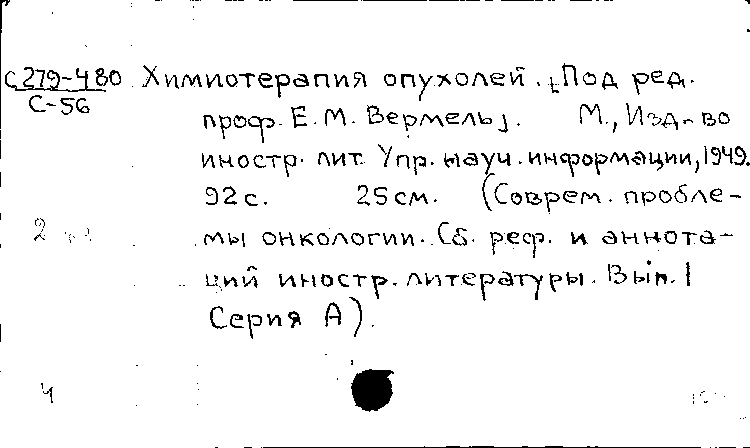 С 279-480 Химиотерапия опухолей. [Под ред.
С-56
проф. Е. М. Вермель]. М., Изд-во
иностр. лит. Упр. науч. информации, 1949.
92 с. 25 см. (Соврем. пробле-
2
мы онкологии. Сб. реф. и аннота-
ций иностр. литературы. Вып. 1
Серия А).
4